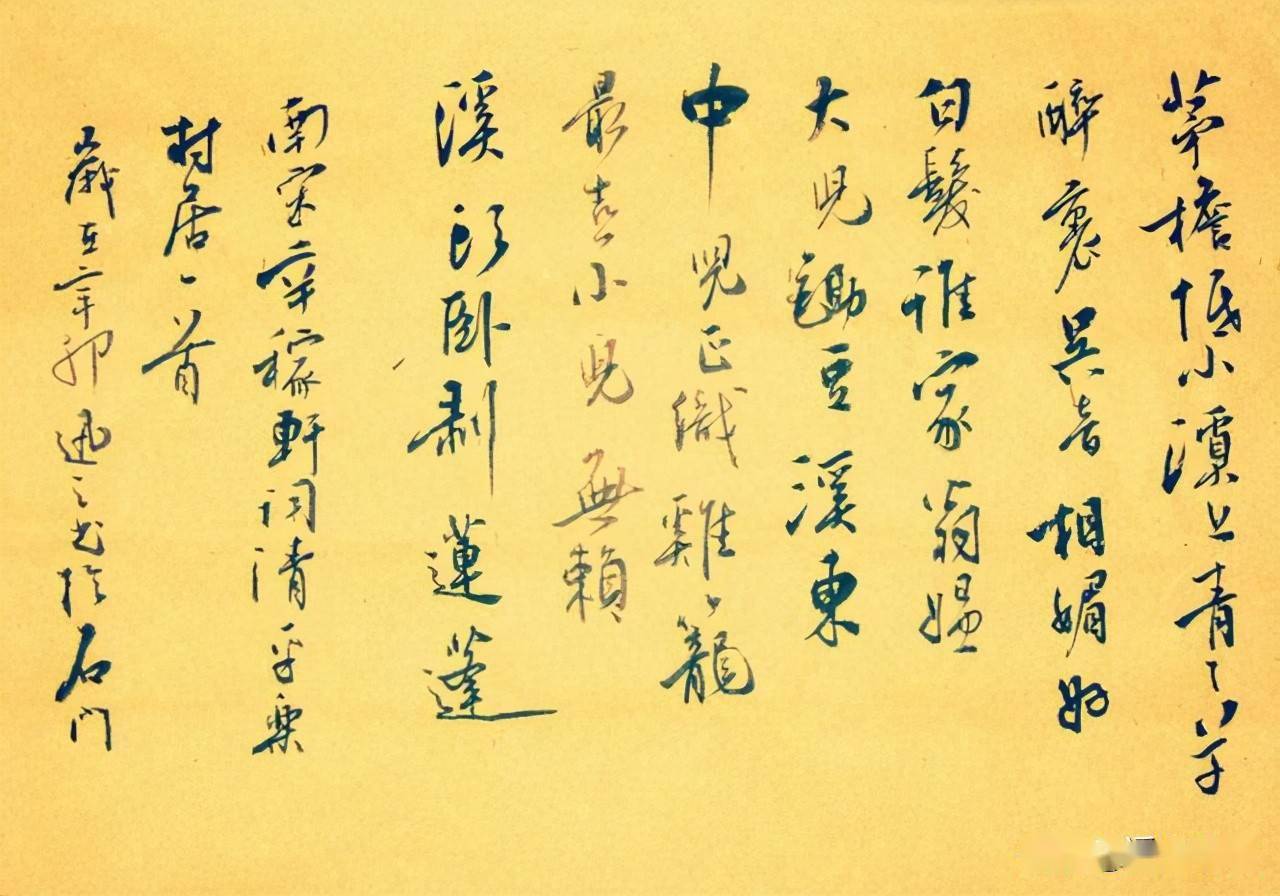 茅檐低小上青々草
醉裏吳音相媚好
白髮誰家翁媼
大兒鋤豆溪東
中兒正織雞籠
最喜小兒無賴
溪頭臥剥蓮蓬
南宋辛稼軒詞清平樂
村居一首
歲在辛卯迅之書於石門